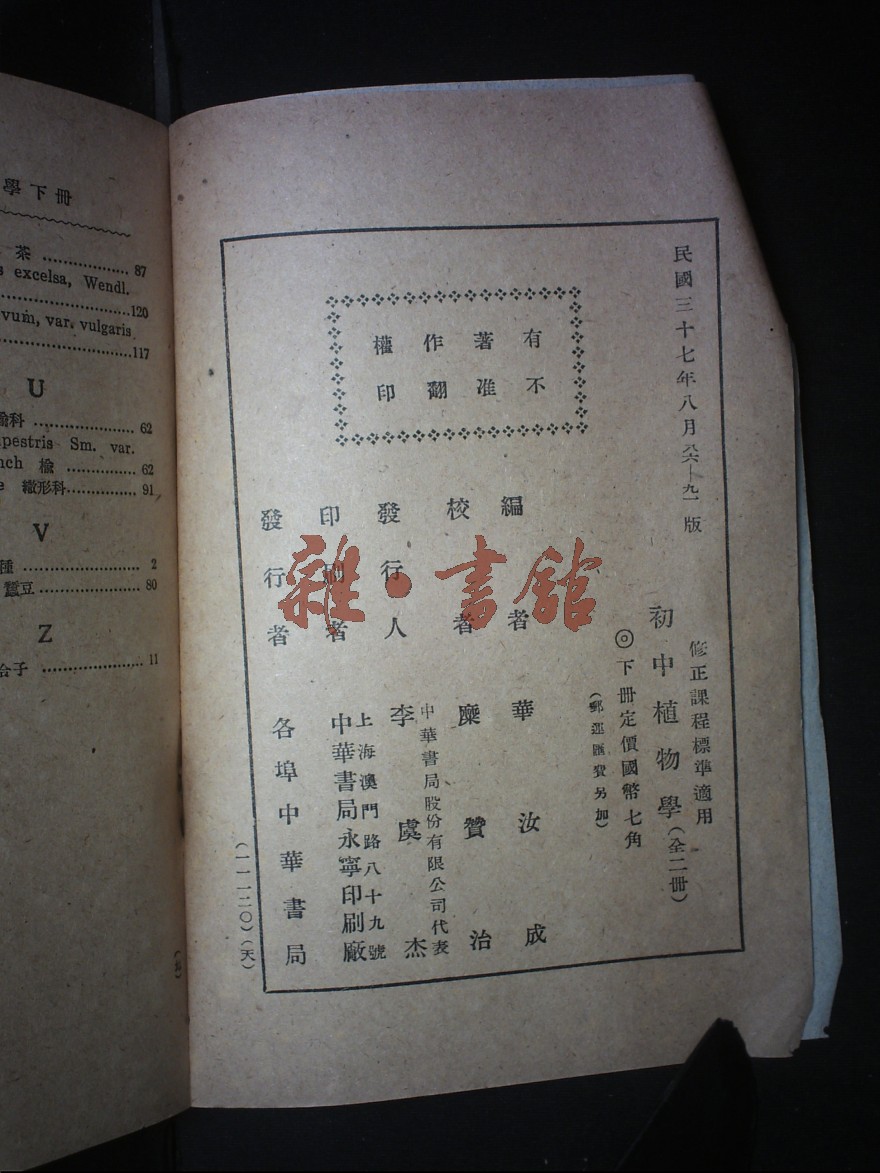 民國三十七年八月八六—九一版
修正課程標準適用
初中植物學(全二冊)
◎下冊定價國幣七角
(郵運匯費另加)
有著作權
不准翻印
編者 華汝成
校者 糜贊治
發行人 中華書局股份有限公司代表
李虞杰
印刷者 上海澳門路八十九號
中華書局永寧印刷廠
發行者 各埠中華書局
(一一一二〇)(天)
雜·書館
學下冊
茶 87
excelsa, Wendl.
120
vum, var. vulgaris
117
U
62
pestris Sm. var.
nch 榆 62
繖形科 91
V
種 2
蠶豆 80
Z
合子 11